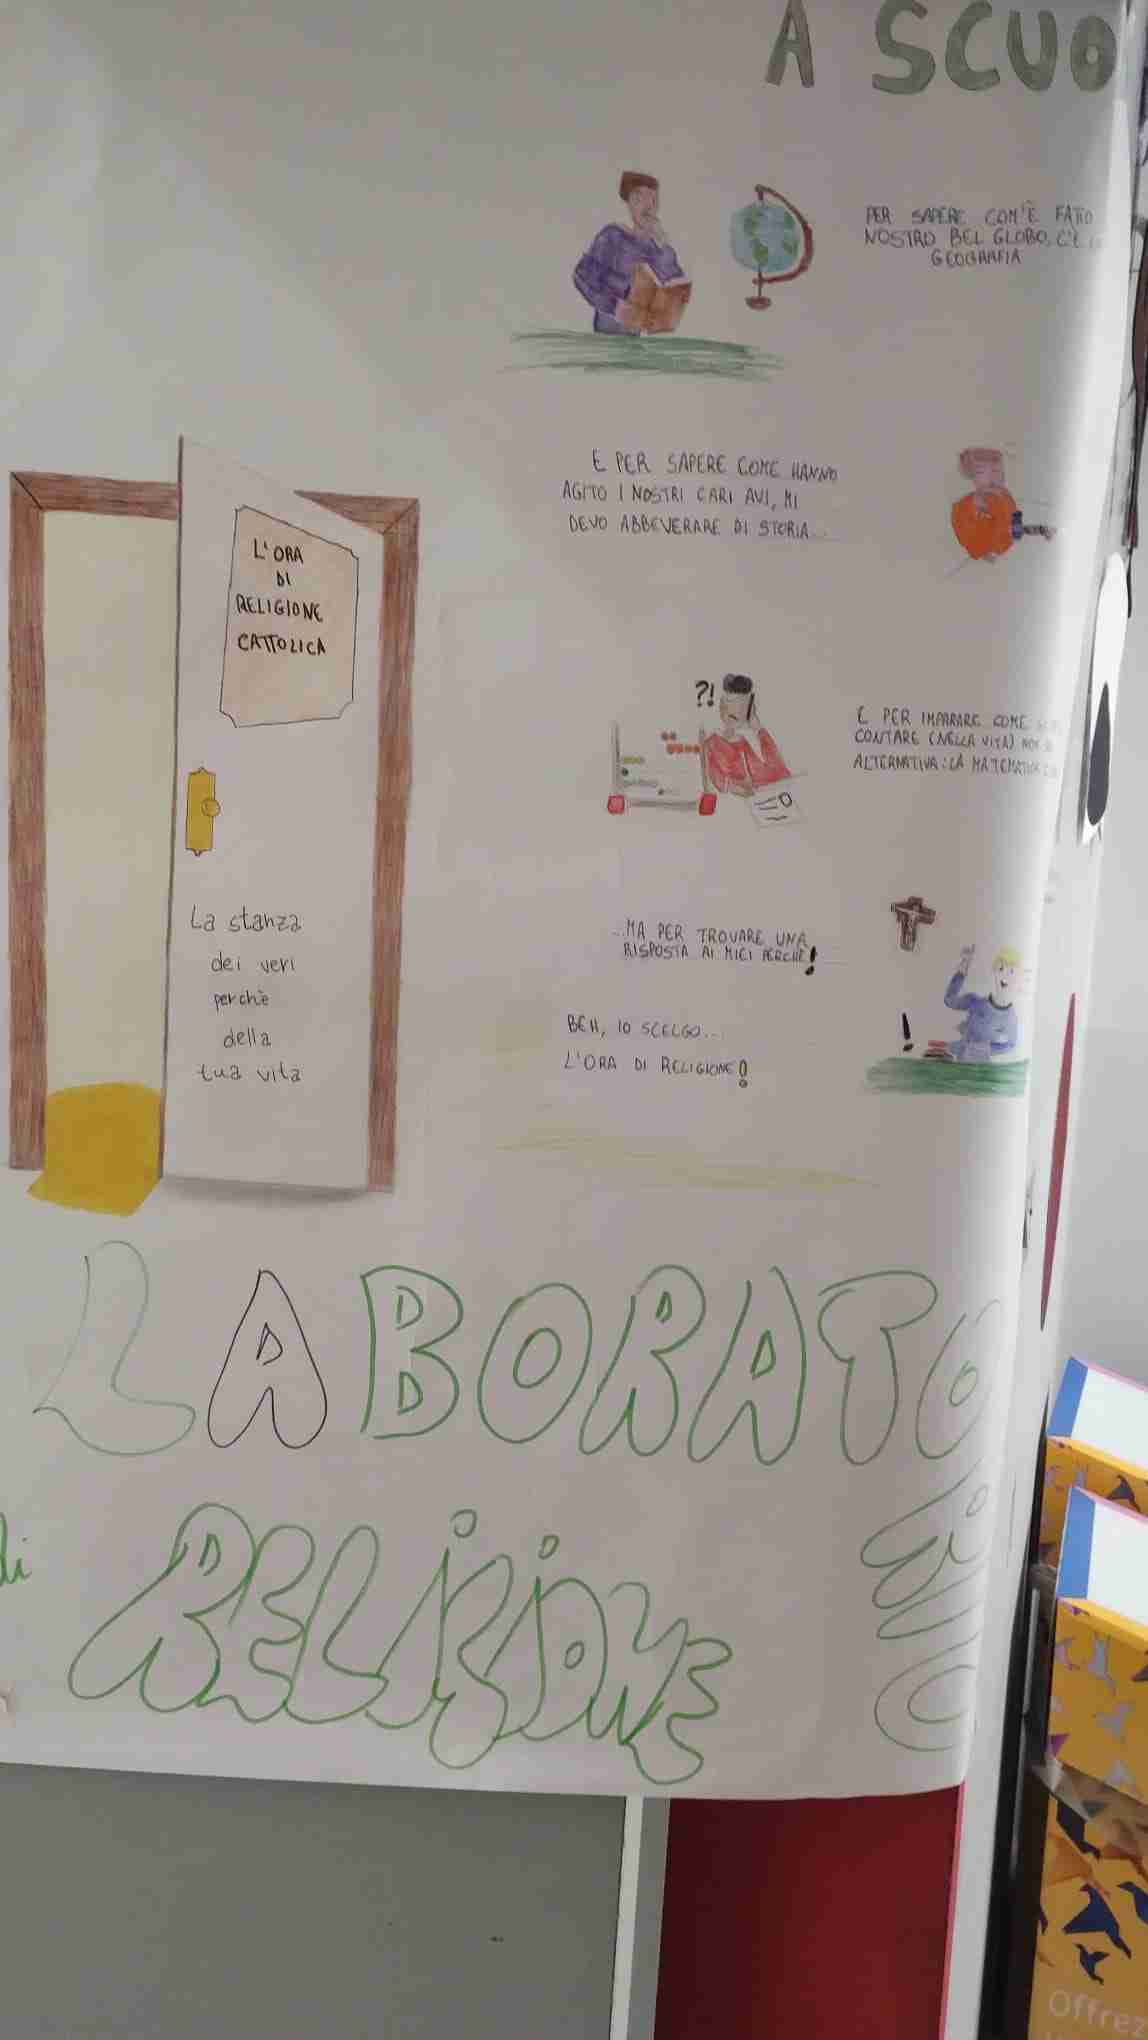 A SCUO
PER SAPERE COM'È FATTO
NOSTRO BEL GLOBO, C'È
GEOGRAFIA
E PER SAPERE COME HANNO
AGITO I NOSTRI CARI AVI, MI
DEVO ABBEVERARE DI STORIA...
L'ORA
DI
RELIGIONE
CATTOLICA
?!
E PER IMPARARE COME
CONTARE (NELLA VITA) NON
ALTERNATIVA: LA MATEMATICA
La stanza
dei veri
perchè
della
tua vita
...MA PER TROVARE UNA
RISPOSTA AI MIEI PERCHÈ!
BEH, IO SCELGO...
L'ORA DI RELIGIONE!
!
LABORATORIO
di RELIGIONE
Offrez